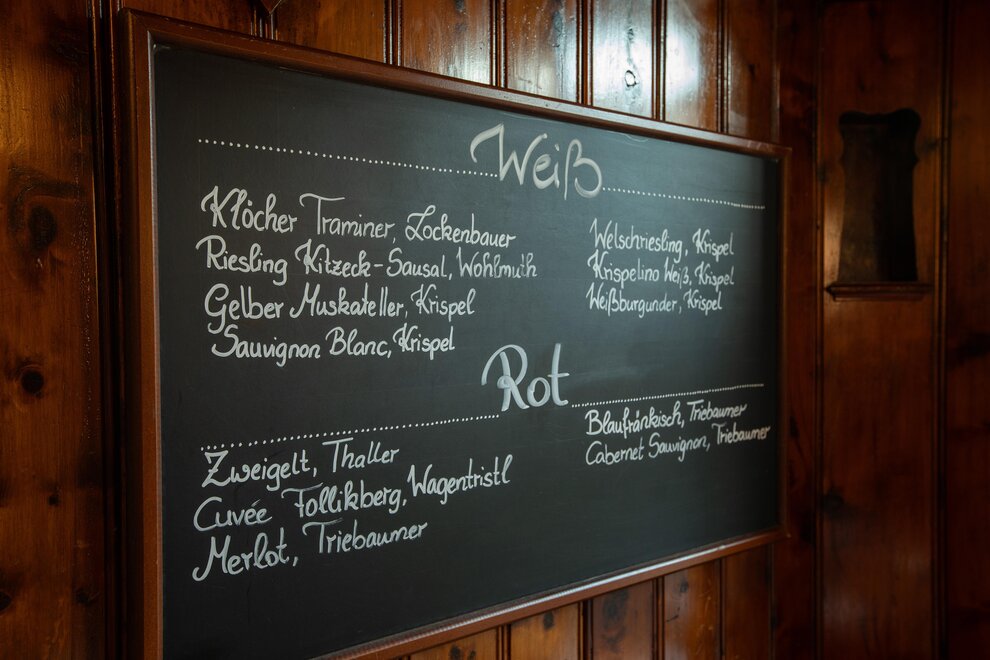 Weiß
Klöcher Traminer, Lockenbauer
Riesling Kitzeck-Sausal, Wohlmuth
Gelber Muskateller, Krispel
Sauvignon Blanc, Krispel
Welschriesling, Krispel
Krispelino Weiß, Krispel
Weißburgunder, Krispel
Rot
Zweigelt, Thaller
Cuvée Follikberg, Wagentristl
Merlot, Triebaumer
Blaufränkisch, Triebaumer
Cabernet Sauvignon, Triebaumer